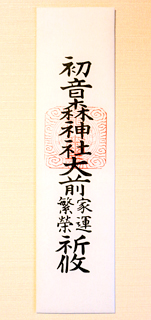 初音森神社大前家運繁榮祈攸